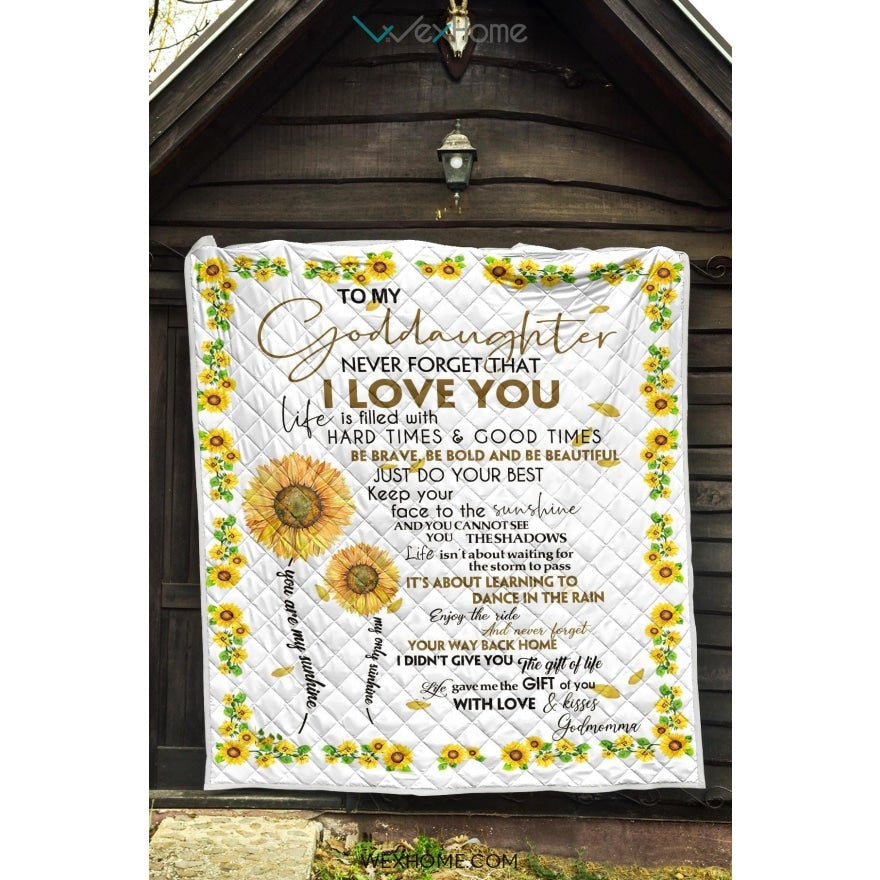 WexHome
TO MY
Goddaughter
NEVER FORGET THAT
I LOVE YOU
life is filled with
HARD TIMES & GOOD TIMES
BE BRAVE, BE BOLD AND BE BEAUTIFUL
JUST DO YOUR BEST
Keep your
face to the sunshine
AND YOU CANNOT SEE
YOU THE SHADOWS
Life isn't about waiting for
the storm to pass
IT'S ABOUT LEARNING TO
DANCE IN THE RAIN
Enjoy the ride
And never forget
YOUR WAY BACK HOME
I DIDN'T GIVE YOU The gift of life
Life gave me the GIFT of you
WITH LOVE & kisses
Godmomma
you are my sunhine
my only sunhine
WEXHOME.COM